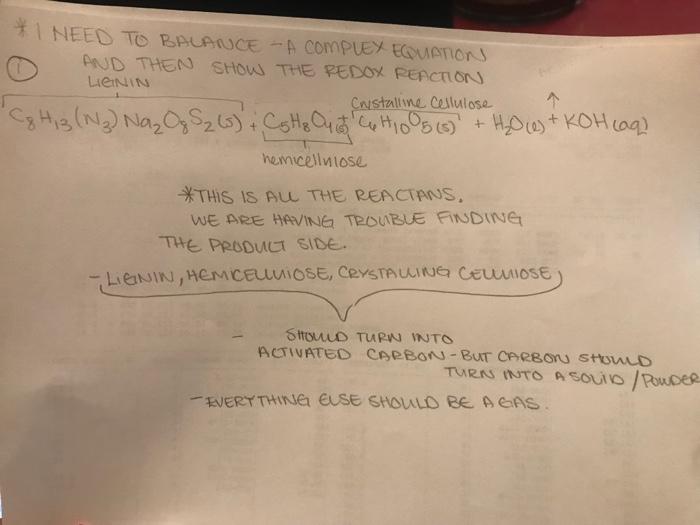 * I NEED TO BALANCE - A COMPLEX EQUATION
① AND THEN SHOW THE REDOX REACTION
LIGNIN
Crystalline Cellulose ↑
C₈H₁₃(N₃)Na₂O₈S₂(s) + C₅H₈O₄(s) + C₆H₁₀O₅(s) + H₂O(l) + KOH(aq)
hemicellulose
*THIS IS ALL THE REACTANS.
WE ARE HAVING TROUBLE FINDING
THE PRODUCT SIDE.
- LIGNIN, HEMICELLUIOSE, CRYSTALLING CELLUIOSE
- SHOULD TURN INTO
ACTIVATED CARBON - BUT CARBON SHOULD
TURN INTO A SOLID / POWDER
- EVERYTHING ELSE SHOULD BE A GAS.